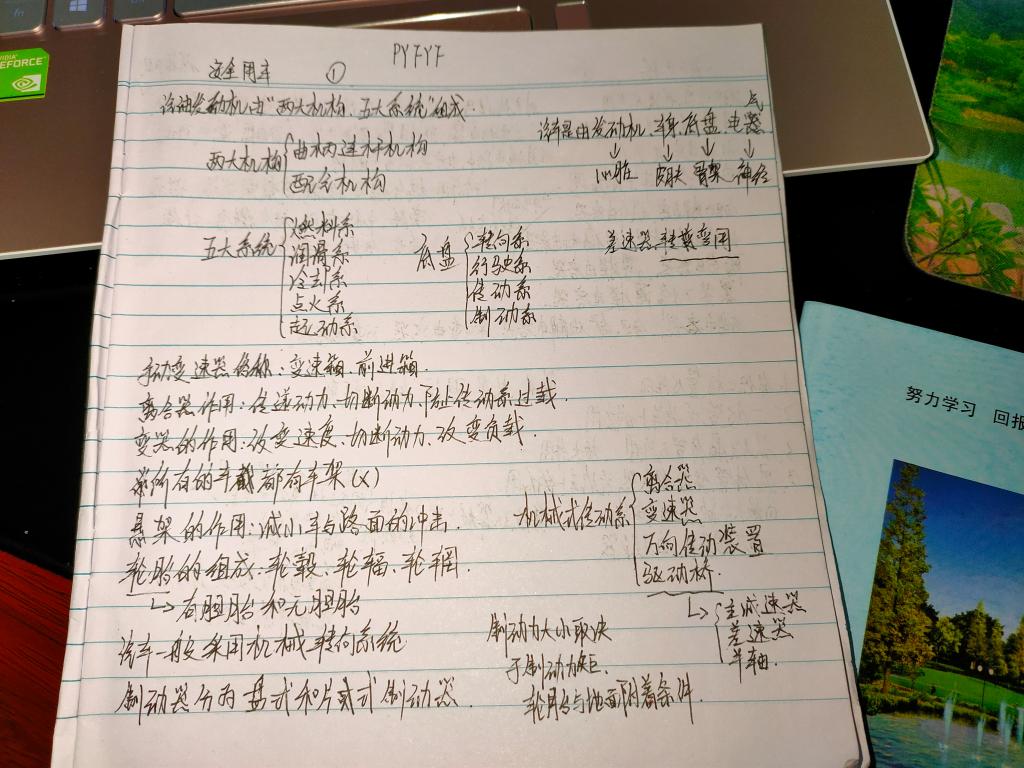 PYFYF
安全用车 ①
汽油发动机由"两大机构、五大系统"组成
汽车是由发动机 车身.底盘.电器
气
心脏 皮肤 骨架 神经
两大机构
曲柄连杆机构
配合机构
五大系统
燃料系
润滑系
冷却系
点火系
起动系
底盘
转向系
行驶系
传动系
制动系
差速器 转弯
手动变速器俗称:变速箱.前进箱.
离合器作用:传递动力、切断动力、防止传动系过载.
变器的作用:改变速度、切断动力、改变负载.
所有的车都有车架(X)
悬架的作用:减小车与路面的冲击.
轮胎的组成:轮毂、轮辐、轮辋.
有胆胎和无胆胎
机械式传动系
离合器
变速器
万向传动装置
驱动桥.
主减速器
差速器
半轴.
汽车一般采用机械转向系统
制动器分为 盘式和 式 制动器.
制动力大小取决
于制动力矩.
轮胎与地面附着条件.
努力学习 回报
NVIDIA
GEFORCE
fn